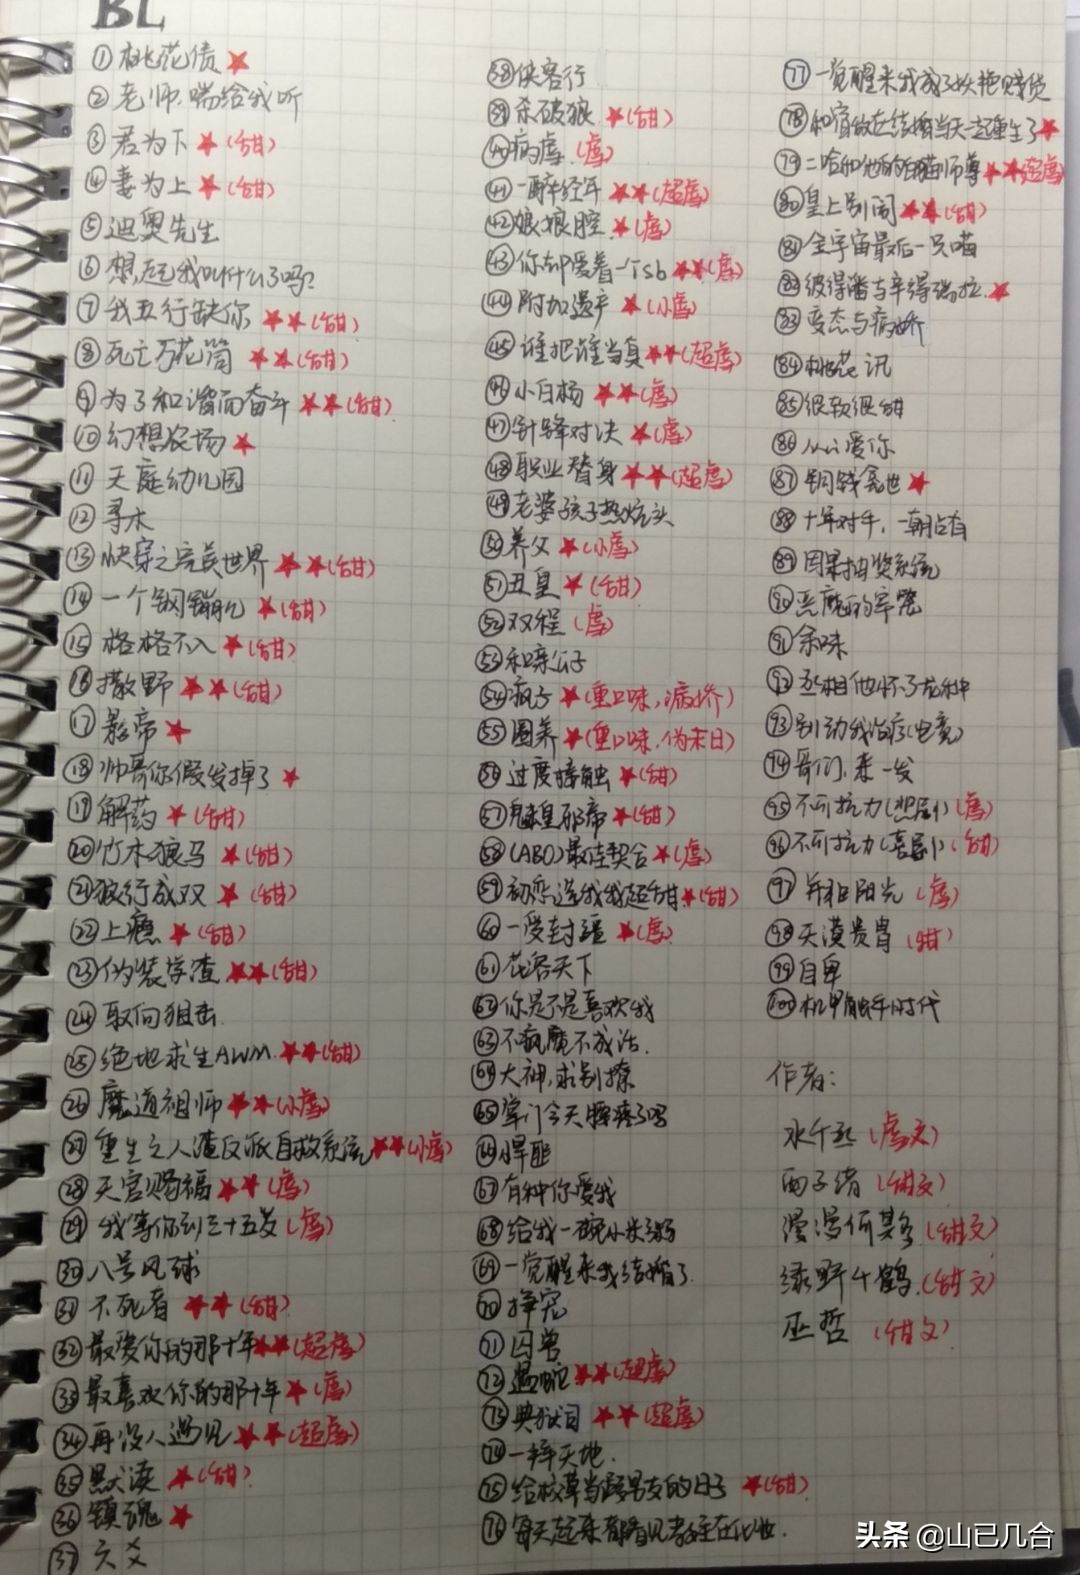 BL
①桃花债★
②老师,喘给我听
③君为下★(甜)
④妻为上★(甜)
⑤迪奥先生
⑥想起我叫什么了吗?
⑦我五行缺你★★(甜)
⑧死亡万花筒★★(甜)
⑨为了和谐而奋斗★★(甜)
⑩幻想农场★
⑪天庭幼儿园
⑫寻木
⑬快穿之完美世界★★(甜)
⑭一个钢镚儿★(甜)
⑮格格不入★(甜)
⑯撒野★★(甜)
⑰影帝★
⑱帅哥你假发掉了★
⑲解药★(甜)
⑳竹木狼马★(甜)
㉑狼行成双★(甜)
㉒上瘾★(甜)
㉓伪装学渣★★(甜)
㉔取向狙击
㉕绝地求生AWM.★★(甜)
㉖魔道祖师★★(小虐)
㉗重生之人渣反派自救系统★★(小虐)
㉘天官赐福★★(虐)
㉙我等你到三十五岁(虐)
㉚八号风球
㉛不死者★★(甜)
㉜最爱你的那十年★★(超虐)
㉝最喜欢你的那十年★(虐)
㉞再没人遇见★★(超虐)
㉟默读★(甜)
㊱镇魂★
㊲六爻
㊳侠客行
㊴杀破狼★(甜)
㊵病虐(虐)
㊶一醉经年★★(超虐)
㊷娘娘腔★(虐)
㊸你却爱着一个sb★★(虐)
㊹附加遗产★(小虐)
㊺谁把谁当真★★(超虐)
㊻小白杨★★(虐)
㊼针锋对决★(虐)
㊽职业替身★★(超虐)
㊾老婆孩子热炕头
㊿养父★(小虐)
51丑皇★(甜)
52双程(虐)
53和亲公子
54疯子★(重口味,病娇)
55圈养★(重口味,伪末日)
56过度接触★(甜)
57魅皇邪帝★(甜)
58(ABO)最佳契合★(虐)
59初恋选我我超甜★(甜)
60一受封疆★(虐)
61花容天下
62你是不是喜欢我
63不疯魔不成活.
64大神,求别撩
65掌门今天腰疼了吗
66悍匪
67有种你爱我
68给我一碗小米粥
69一觉醒来我结婚了
70择宠
71囚兽
72遇蛇★★(超虐)
73典狱司★★(超虐)
74一拜天地.
75给校草当踢男友的日子★(甜)
76每天起来都看见老圣在化妆.
77一觉醒来我成了妖艳贱货
78和宿敌在结婚当天一起重生了★
79二哈和他的白猫师尊★★(超虐)
80皇上别闹★★(甜)
81全宇宙最后一只喵
82彼得潘与辛得瑞拉.★
83变态与病娇
84桃花讯
85很软很甜
86从心爱你
87铜钱龛世★
88十年对手,一朝占有
89因果抽奖系统
90恶魔的牢笼
91余味
92丞相他怀了龙种
93别动我治疗(电竞)
94哥们,来一发
95不可抗力(悲剧)(虐)
96不可抗力(喜剧)(甜)
97并租阳光(虐)
98天漠贵胄(甜)
99自卑
100机甲触手时代
作者:
水千丞(虐文)
西子绪(甜文)
漫漫何其多(甜文)
绿野千鹤.(甜文)
巫哲(甜文)
头条@山已几合